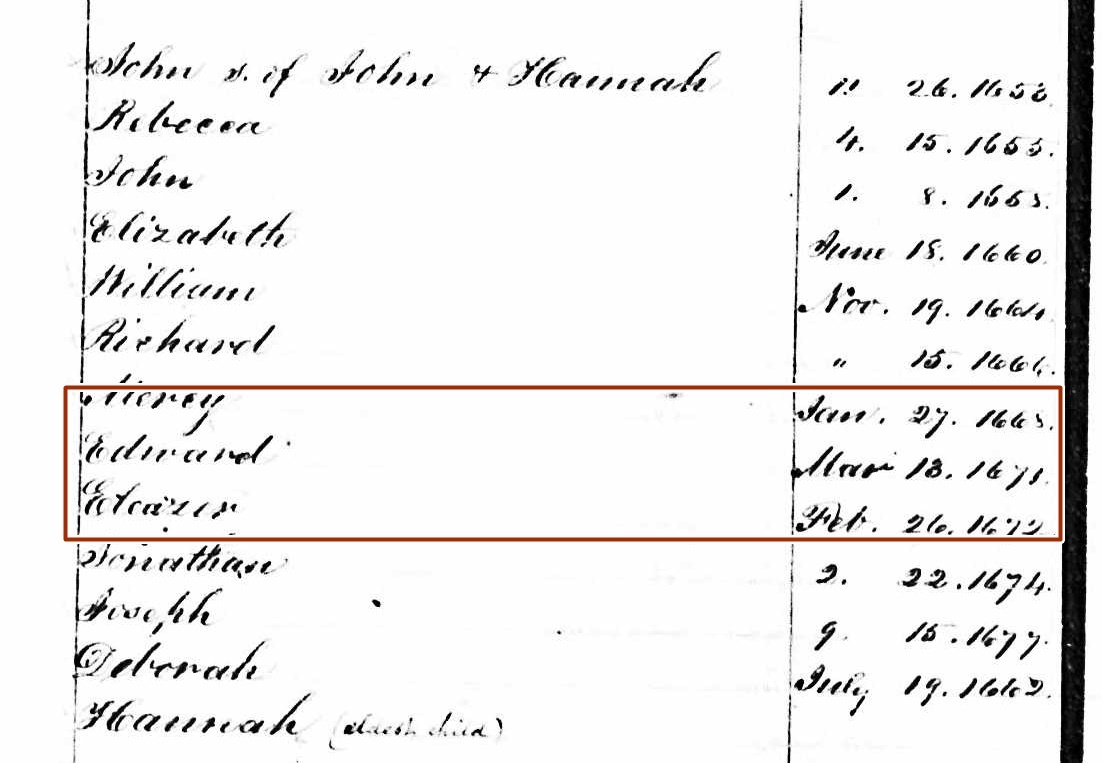 John s. of John & Hannah 11 26. 1653.
Rebecca 4. 15. 1655.
John 1. 8. 1658.
Elizabeth June 18. 1660.
William Nov. 19. 1664.
Richard " 15. 1666.
Mercy Jan. 27. 1668.
Edward Mar 13. 1671.
Eleazer Feb. 26. 1672
Jonathan 2. 22. 1674.
Joseph 9. 15. 1677.
Deborah July 19. 1662.
Hannah (eldest child)